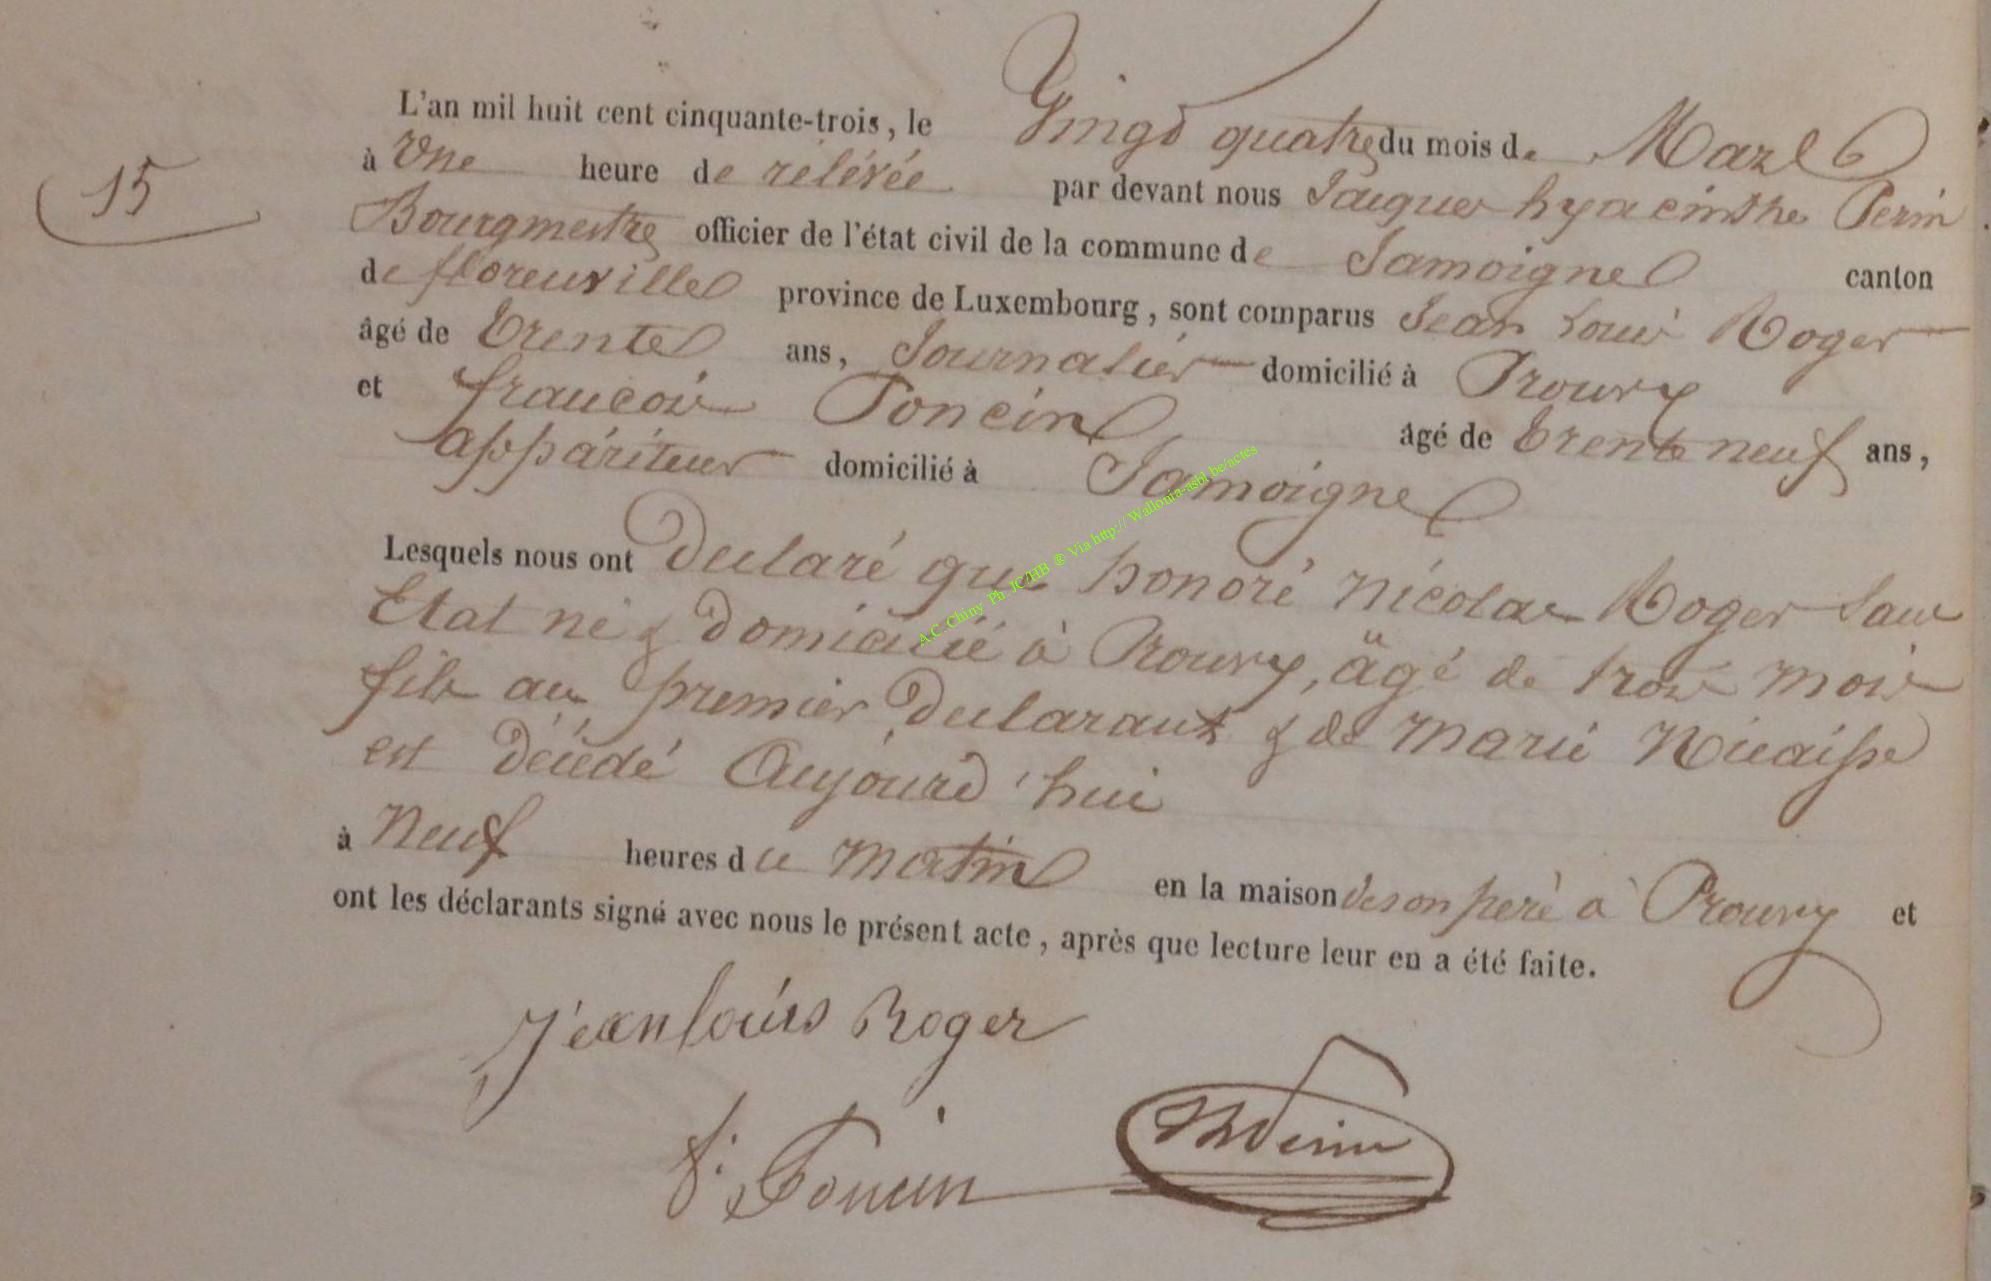 L'an mil huit cent cinquante-trois, le Vingt quatre du mois de Mars
15
à Une heure de rélévée par devant nous Jacques hyacinthe Perin
Bourgmestre officier de l'état civil de la commune de Jamoigne canton
de florenville province de Luxembourg, sont comparus Jean Louis Roger
âgé de trente ans, Journalier domicilié à Prouvy
et francois Poncin âgé de trente neuf ans,
appariteur domicilié à Jamoigne
Lesquels nous ont Déclaré que honoré Nicolas Roger Sans
Etat né & domicilié à Prouvy, âgé de trois mois
fils au premier Déclarant & de Marie Nicaisse
est décédé Aujourd'hui
à Neuf heures du matin en la maison de son père à Prouvy et
ont les déclarants signé avec nous le présent acte, après que lecture leur en a été faite.
Jean louis Roger
f. Poncin
JH Perin
A.C. Chiny Ph. JC/HB ® Via http:// Wallonia-asbl.be/actes